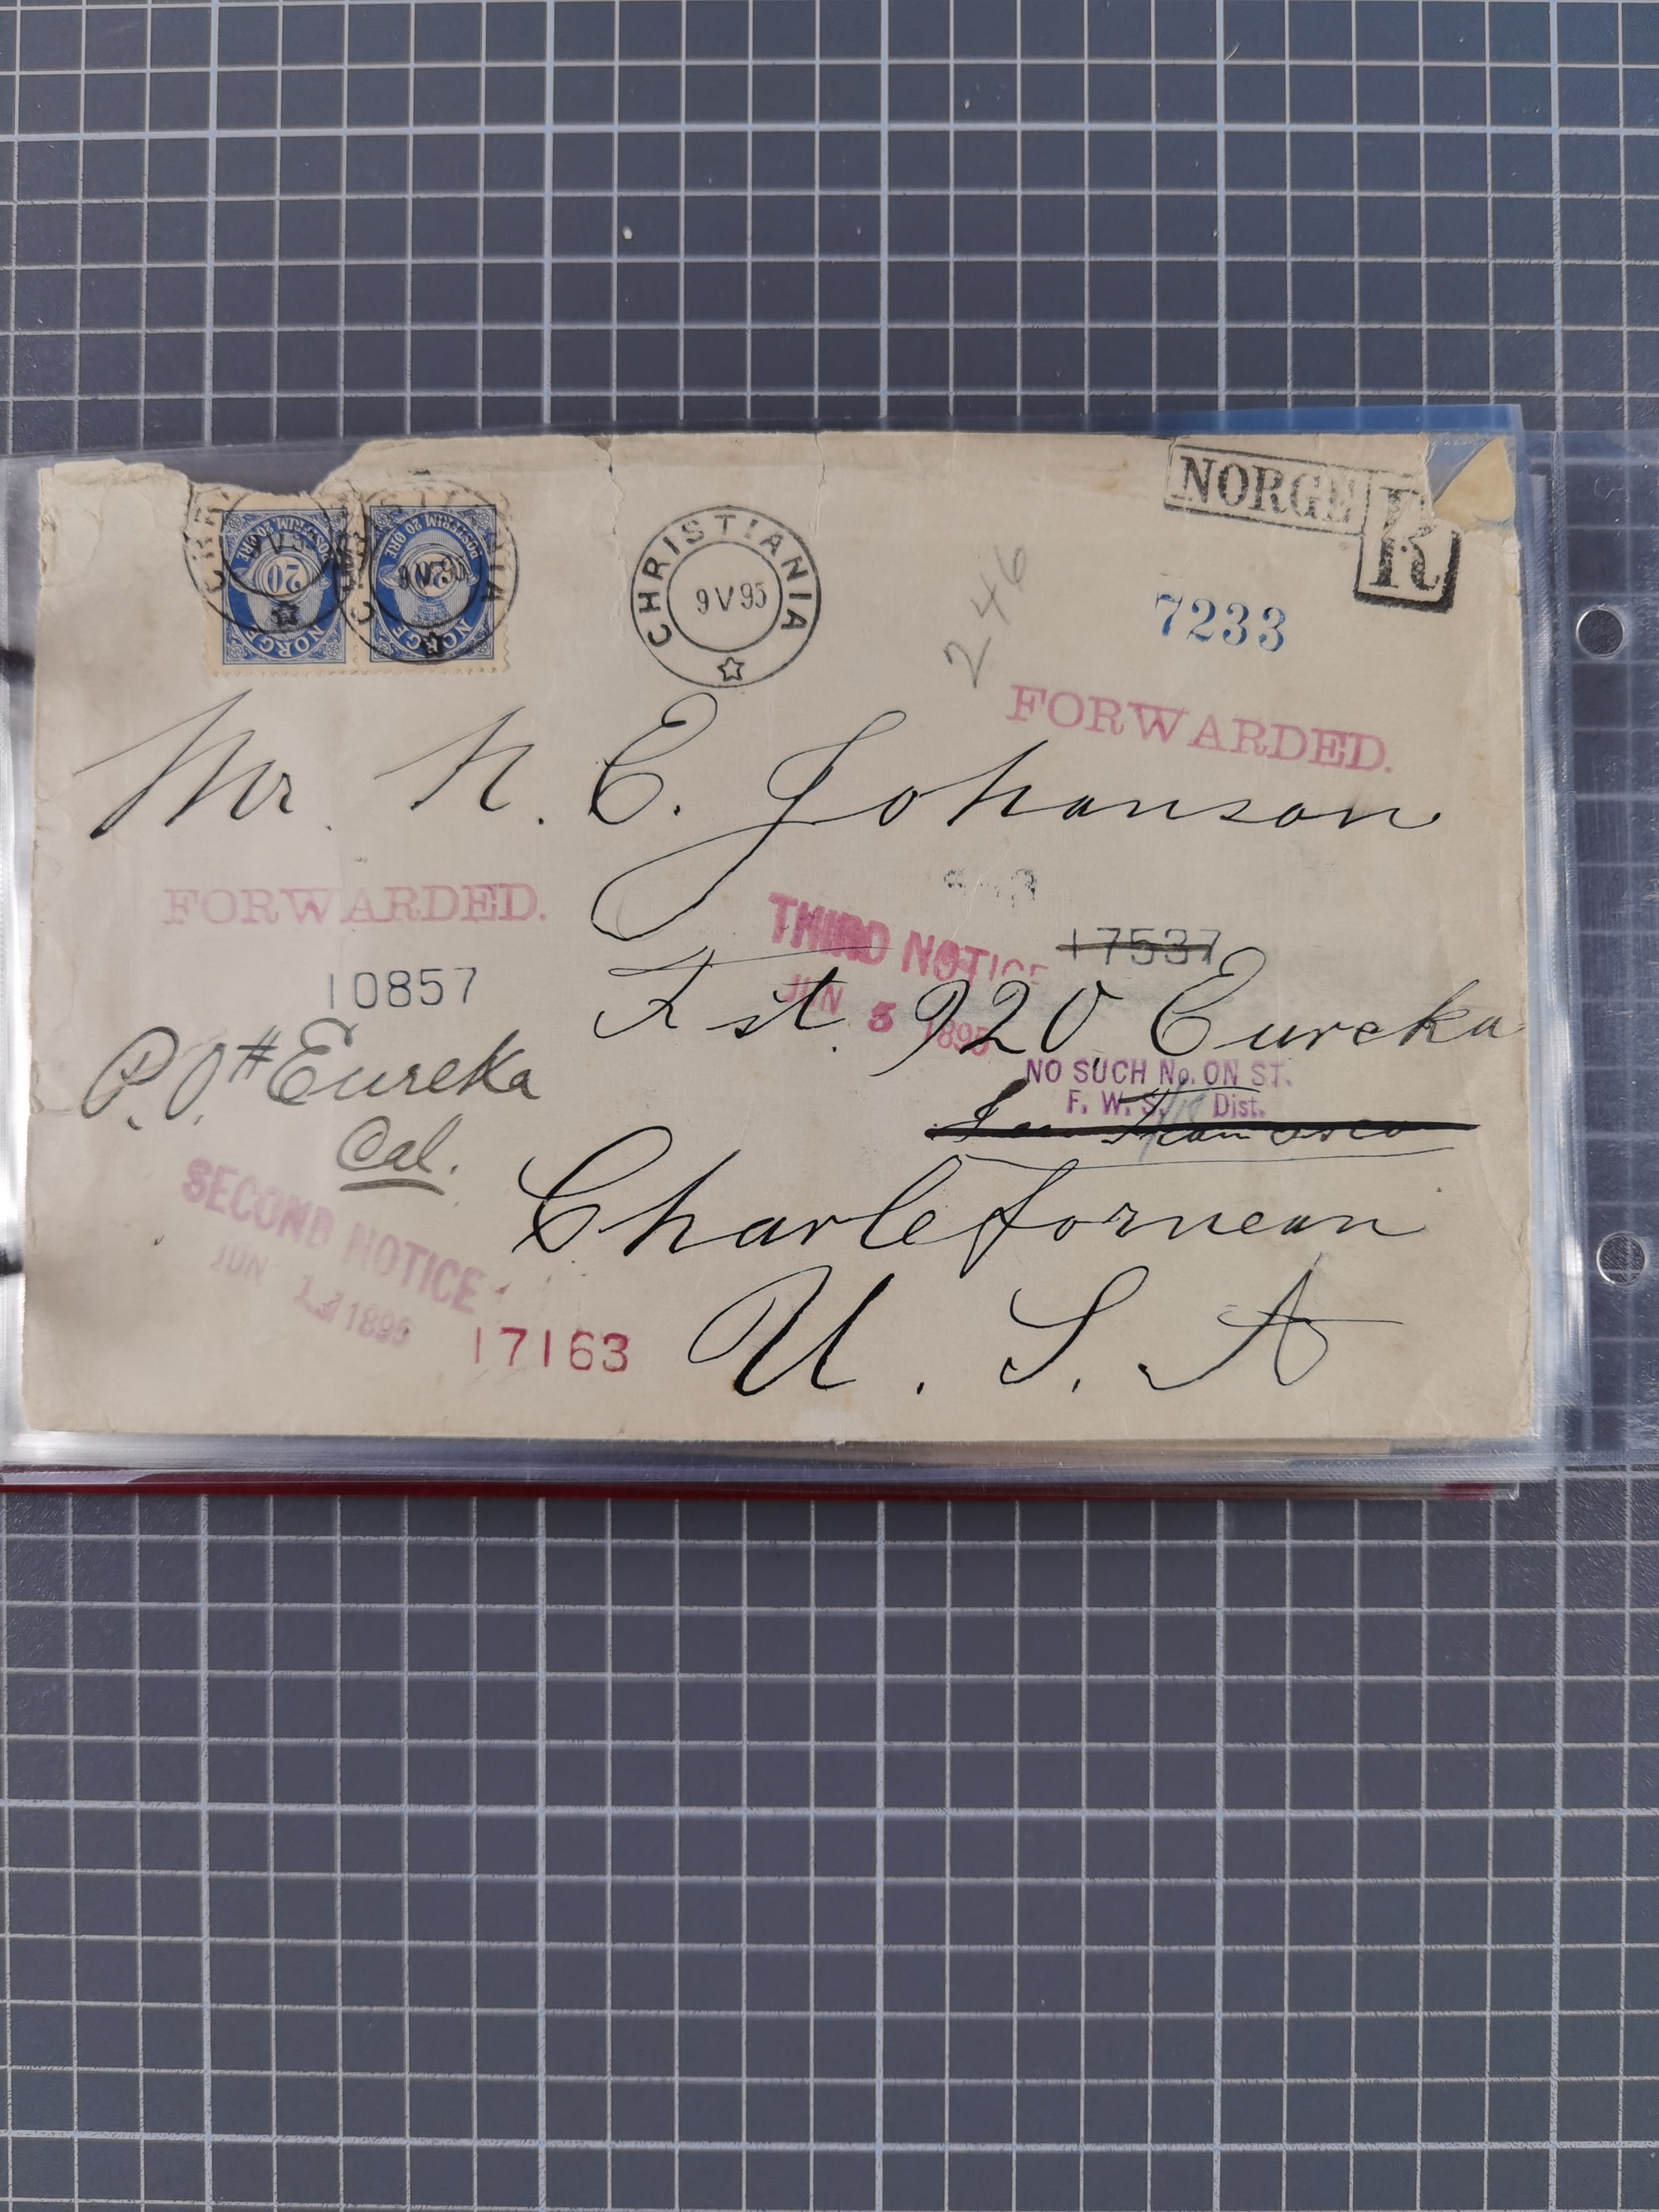 NORGE R
POSTFRIM 20 ØRE
20
NORGE
POSTFRIM 20 ØRE
20
NORGE
CHRISTIANIA
9 V 95
246
7233
FORWARDED.
Mr. N. E. Johanson
FORWARDED.
THIRD NOTICE
JUN 5 1895
17537
10857
F st. 920 Eureka
P.O. # Eureka
Cal.
NO SUCH No. ON ST.
F. W. S. Dist.
San Francisco
Charlefornean
SECOND NOTICE
JUN 1895
17163
U. S. A